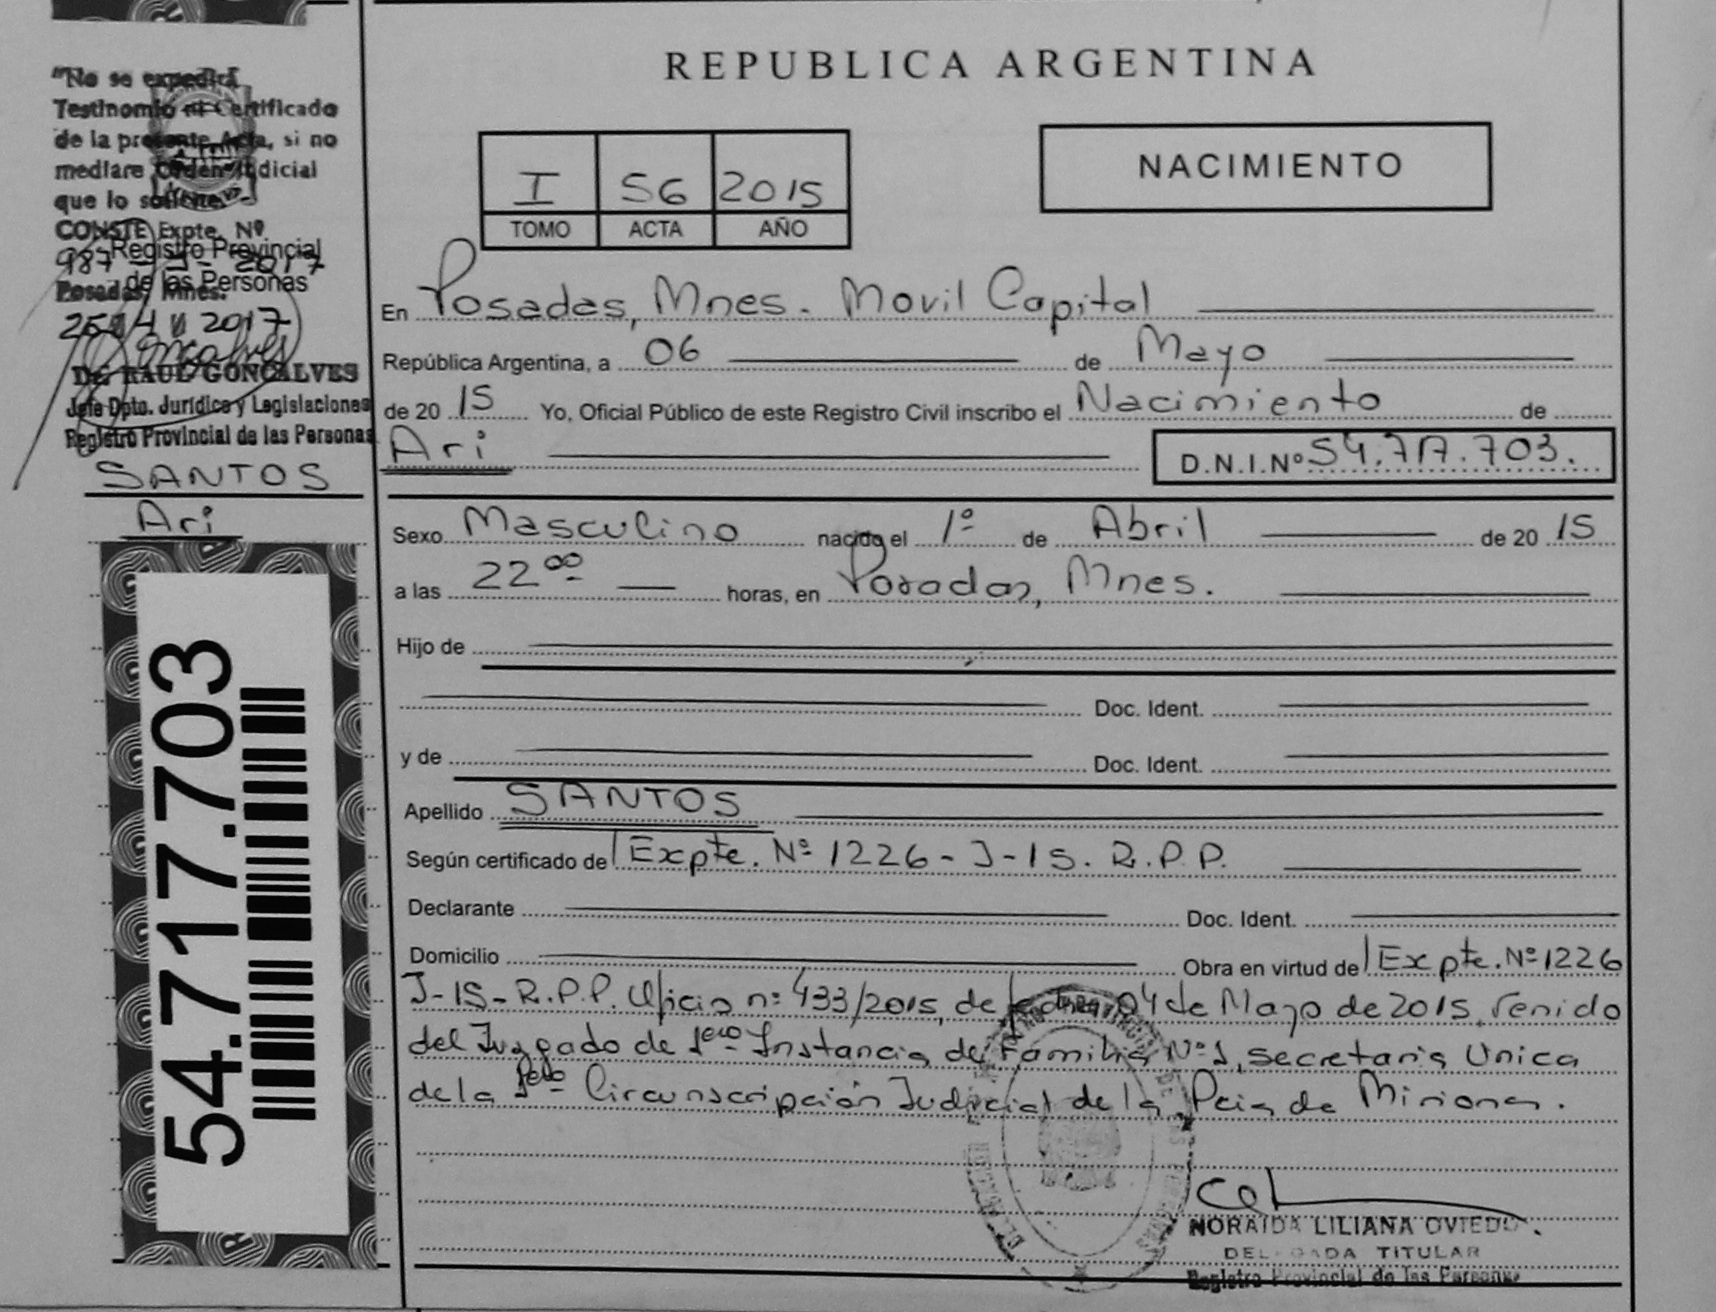 "No se expedirá
Testimonio ni Certificado
de la presente Acta, si no
mediare Orden Judicial
que lo solicite."
CONSTE Expte. Nº
987 - J - 2017
Registro Provincial
de las Personas
Posadas, Mnes.
2017
Dr. RAUL GONCALVES
Jefe Dpto. Jurídico y Legislaciones
Registro Provincial de las Personas
SANTOS
Ari
54.717.703
REPUBLICA ARGENTINA
I 56 2015
TOMO ACTA AÑO
NACIMIENTO
En Posadas, Mnes. Movil Capital
República Argentina, a 06 de Mayo
de 20 15 Yo, Oficial Público de este Registro Civil inscribo el Nacimiento de
Ari D.N.I.Nº 54.717.703.
Sexo Masculino nacido el 1º de Abril de 20 15
a las 22 00 horas, en Posadas, Mnes.
Hijo de
Doc. Ident.
y de Doc. Ident.
Apellido SANTOS
Según certificado de Expte. Nº 1226 - J - 15. R.P.P.
Declarante Doc. Ident.
Domicilio Obra en virtud de Expte. Nº 1226
J-15-R.P.P. Oficio nº 433/2015, de fecha 04 de Mayo de 2015, venido
del Juzgado de 1era Instancia de Familia Nº 1, secretaria Unica
de la 1era Circunscripción Judicial de la Pcia de Misiones.
NORAIDA LILIANA OVIEDO
DELEGADA TITULAR
Registro Provincial de las Personas